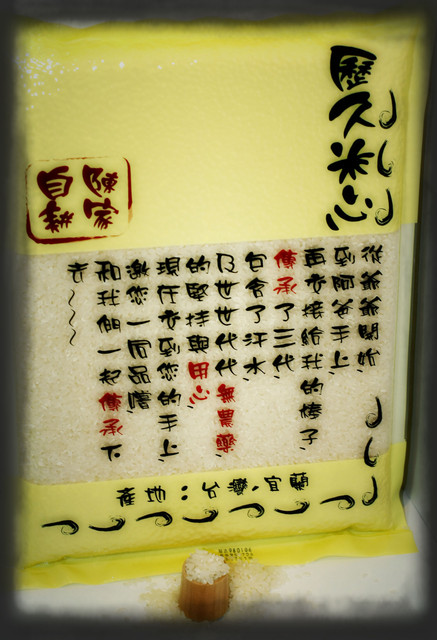 歷久米心
陳家
自耕
從爺爺開始,
到阿爸手上,
再交接給我的子,
傳承了三代,
包含了汗水,
及世世代代無農藥,
的堅持與用心,
現在交到您的手上,
邀您一同品嚐,
和我們一起傳承下
去~~~
產地:台灣.宜蘭